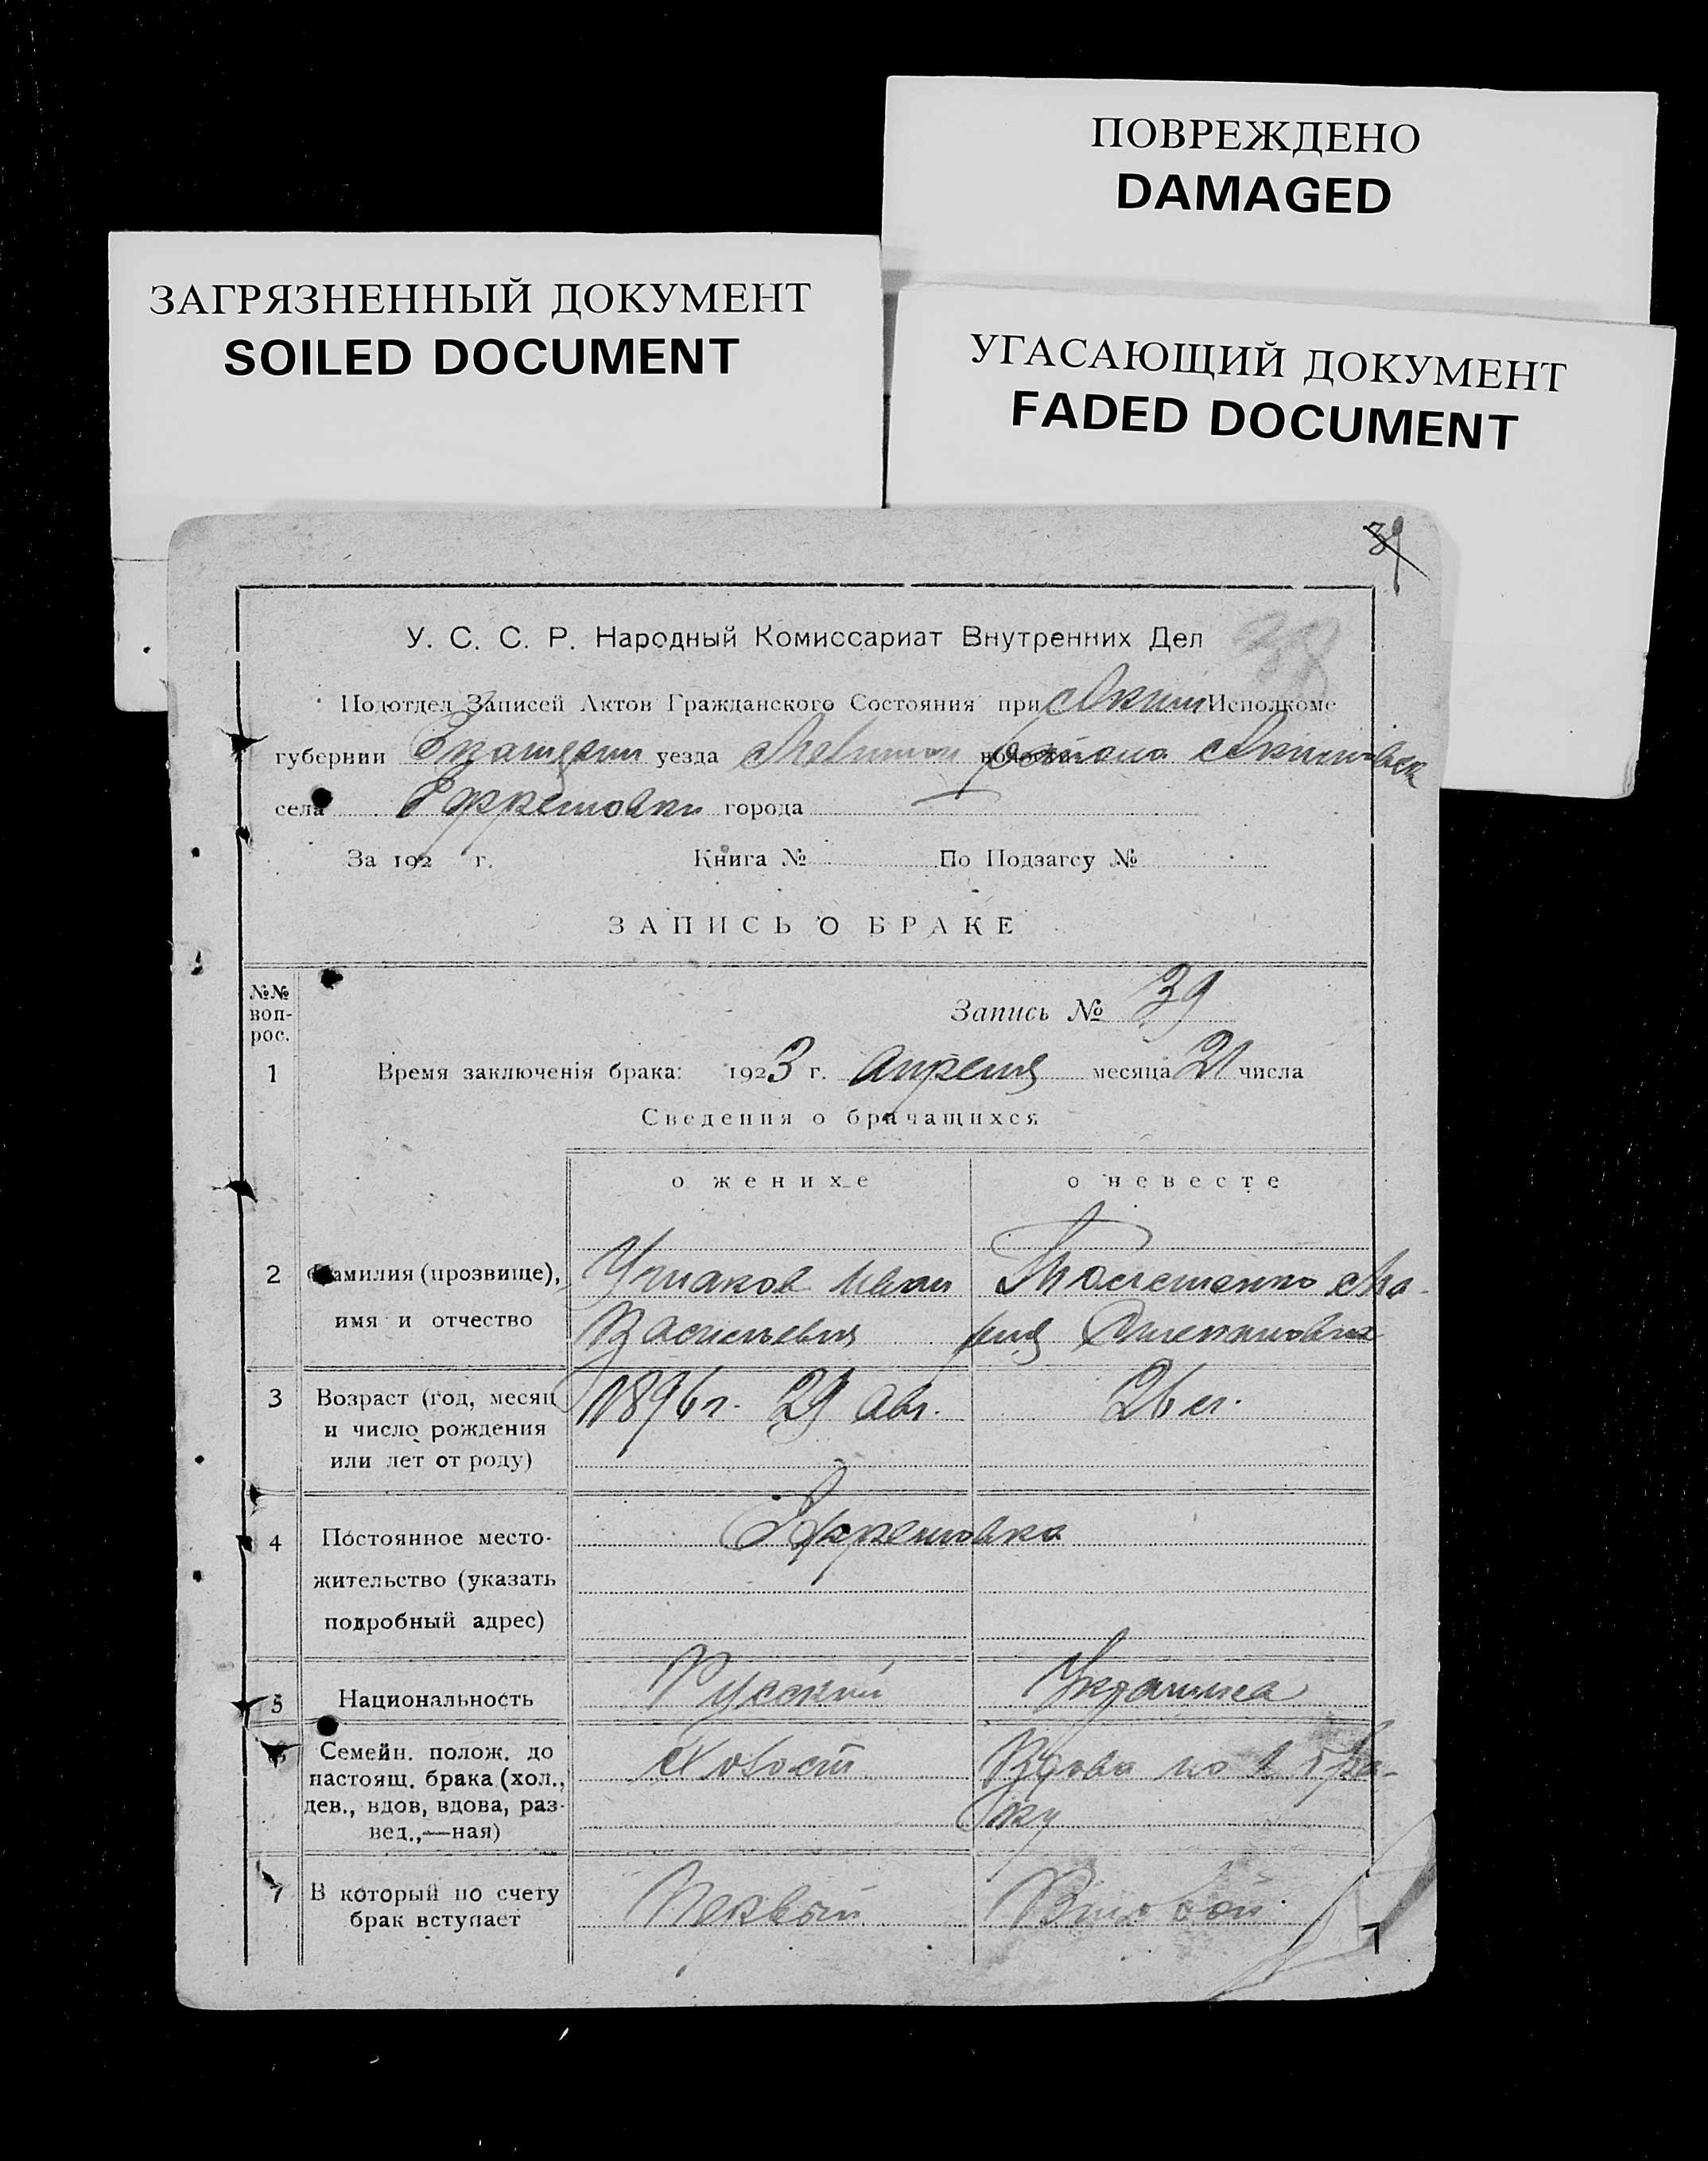 ПОВРЕЖДЕНО
DAMAGED
ЗАГРЯЗНЕННЫЙ ДОКУМЕНТ
SOILED DOCUMENT
УГАСАЮЩИЙ ДОКУМЕНТ
FADED DOCUMENT
39
У. С. С. Р. Народный Комиссариат Внутренних Дел
38
Подотдел Записей Актов Гражданского Состояния при Аким Исполкоме
губернии уезда района Акимовск
села Ефремовки города
За 192 г. Книга № По Подзагсу №
ЗАПИСЬ О БРАКЕ
№№ воп-рос.
Запись № 39
1 Время заключенія брака: 1923 г. Апреля месяца 21 числа
Сведения о брачащихся
о женихе о невесте
2 Фамилия (прозвище), имя и отчество
Ушаков Иван
Васильевич
Ма-
рия
3 Возраст (год, месяц и число рождения или лет от роду)
1896 г. 29 авг.
26 л.
4 Постоянное место-жительство (указать подробный адрес)
Ефремовка
5 Национальность
Русский
Украинка
6 Семейн. полож. до настоящ. брака (хол., дев., вдов, вдова, раз-вед.,—ная)
Холост
Вдова по 1 бра-
ку
7 В который по счету брак вступает
Первый
Второй